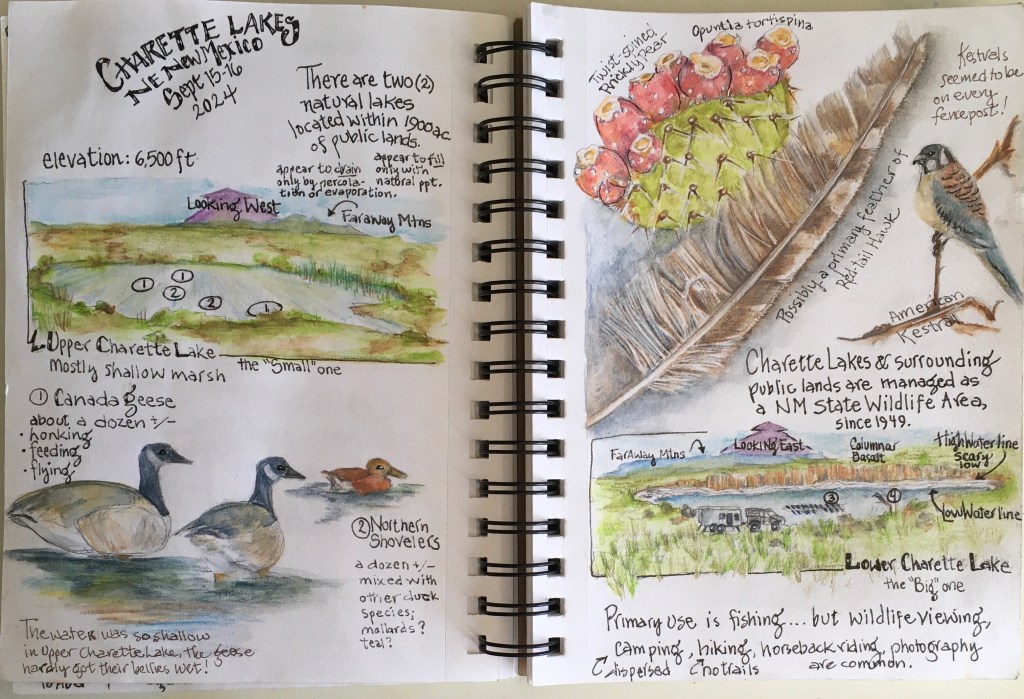 CHARETTE LAKES
NE New Mexico
Sept 15-16
2024
There are two (2)
natural lakes
located within 1900 ac
of public lands.
elevation: 6,500 ft
appear to drain
only by percola-
tion or evaporation.
appear to fill
only with
natural ppt.
Looking West
Faraway Mtns
① ① ② ② ①
Upper Charette Lake
the "Small" one
mostly shallow marsh
① Canada geese
about a dozen +/-
• honking
• feeding
• flying
② Northern
Shovelers
a dozen +/-
mixed with
other duck
species;
mallards?
teal?
The water was so shallow
in Upper Charette Lake, the geese
hardly got their bellies wet!
Twist-spined
Prickly pear
Opuntia tortispina
Possibly a primary feather of
Red-tail Hawk
Kestrals
seemed to be
on every
fencepost!
American
Kestrall
Charette Lakes & surrounding
public lands are managed as
a NM State Wildlife Area,
since 1949.
FarAway Mtns
Looking East
Columnar
Basalt
High Water line
scary
low
③ ④
Low Water line
Lower Charette Lake
the "Big" one
Primary use is fishing... but wildlife viewing,
camping, hiking, horseback riding, photography
dispersed no trails are common.